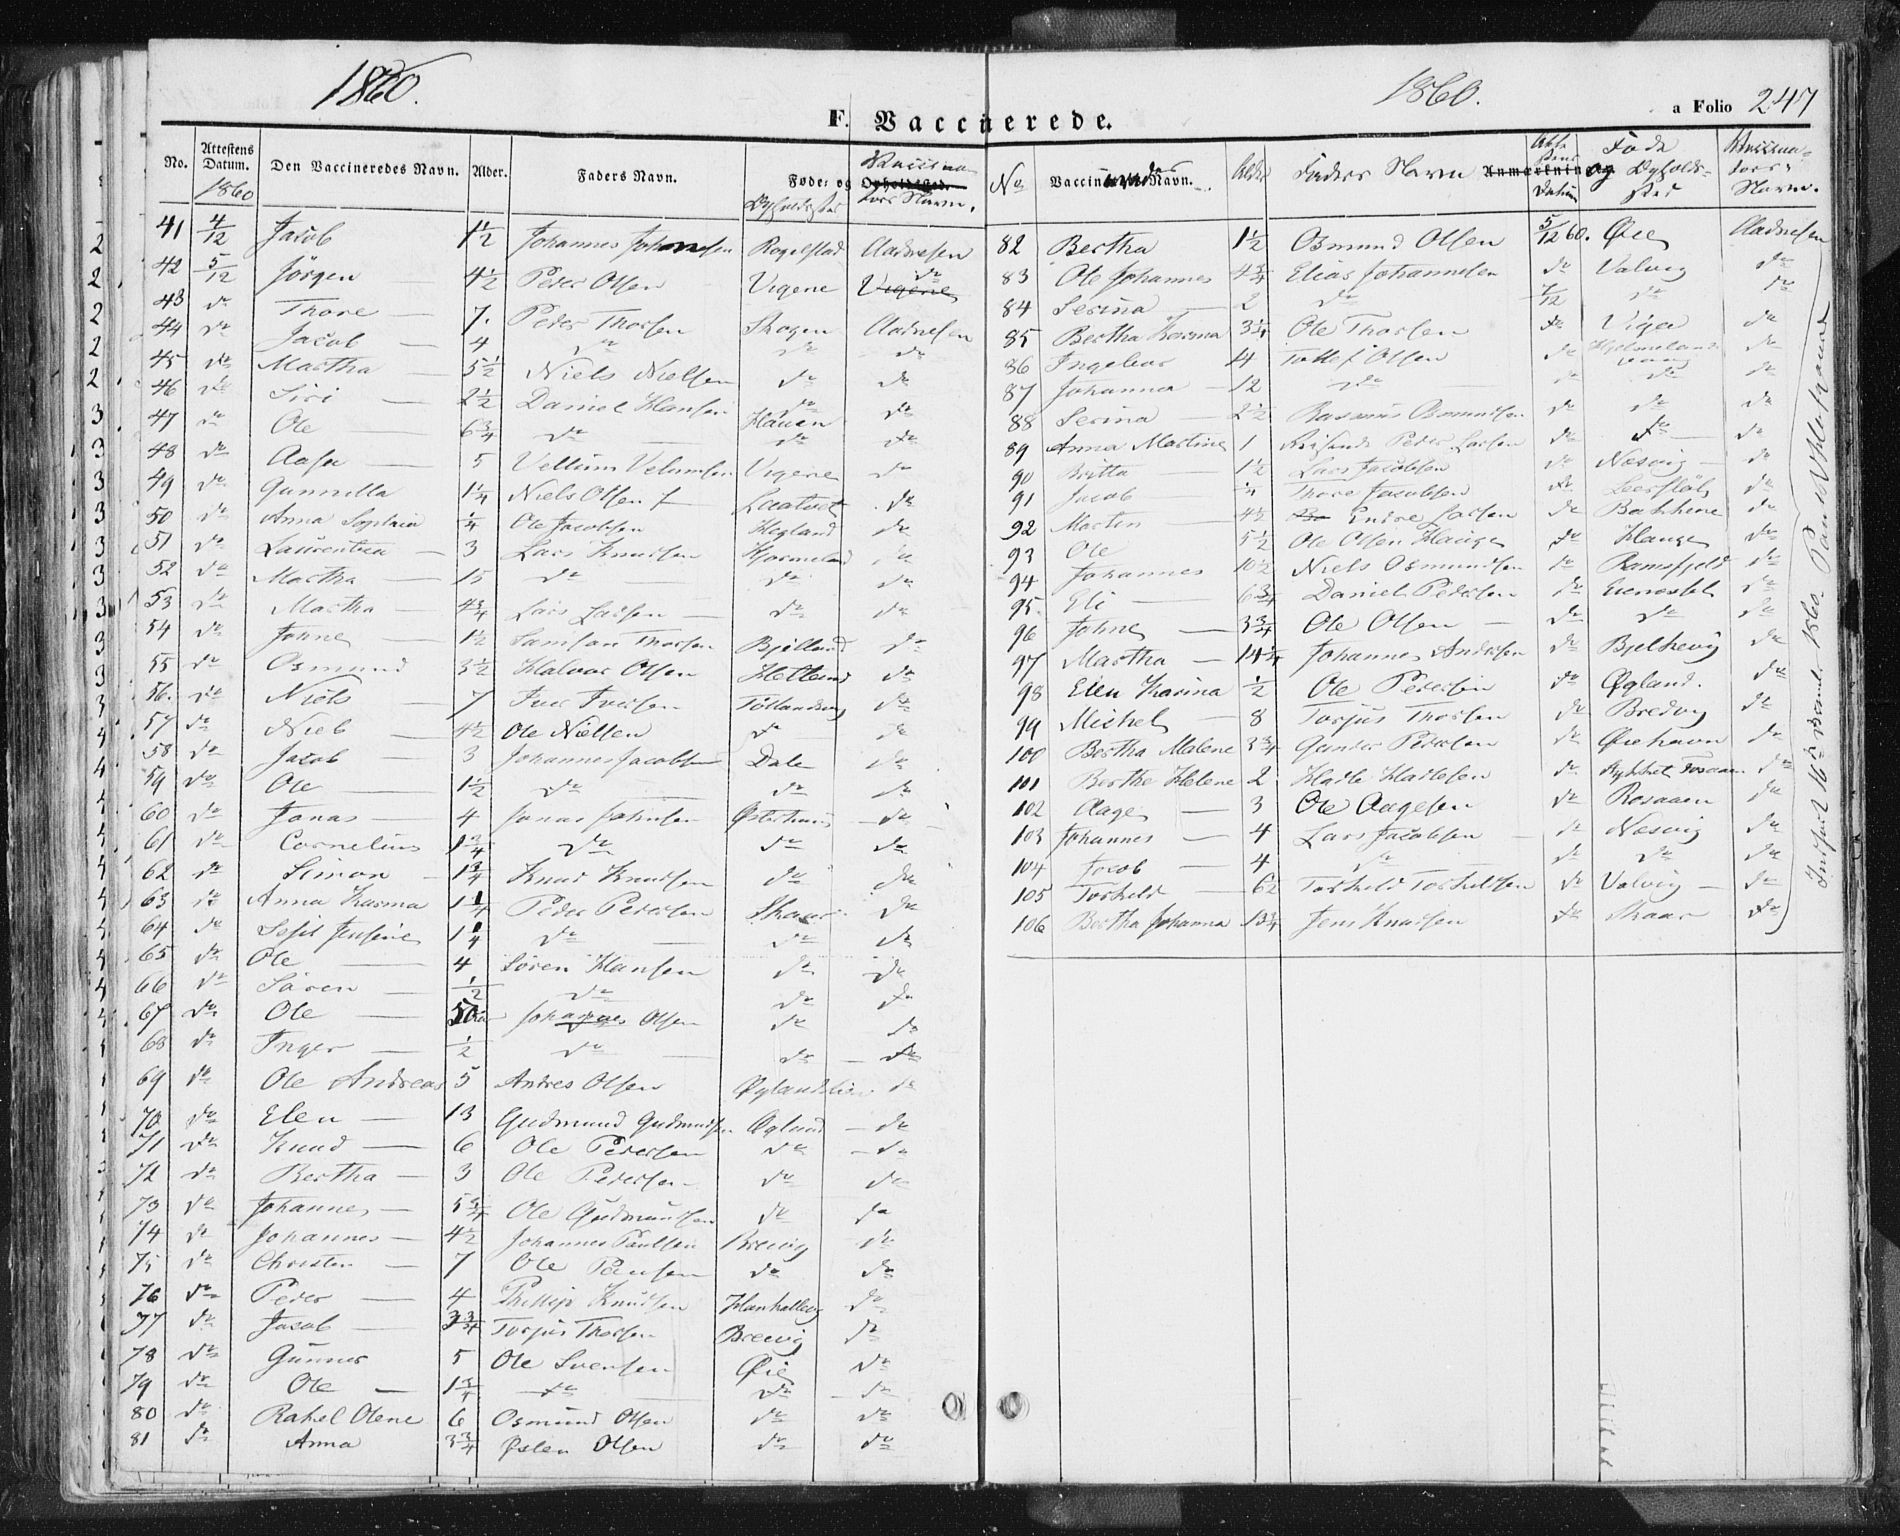 1860.
1860.
a Folio 247
F. Vaccinerede.
No. | Attestens Datum. 1860 | Den Vaccineredes Navn. | Alder. | Faders Navn. | Føde: og Opholdssted | Vaccinators Navn.
41 4/12 Jacob 1½ Johannes Johannesen Rogelstad Aadnesen
42 5/12 Jörgen — 4½ Peder Olsen Vigene do
43 do Thore — 7. Peder Thorsen Skogen Aadnesen
44 do Jacob — 4 do do do
45 do Martha — 5½ Niels Nielsen do do
46 do Siri — 2½ Daniel Hansen do do
47 do Ole — 6¾ do Hauen do
48 do Aasa — 5 Vellum Velumsen Vigene do
49 do Gunnilla 1¼ Niels Olsen do
50 do Anna Sophia ¼ Ole Jacobsen Hegland do
51 do Laurentza — 3 Lars Knudsen Hjormeland do
52 do Martha — 15 do do do
53 do Martha — 4¾ Lars Larsen — do do
54 do Johne — 1½ Samson Thorsen Bjelland do
55 do Osmund 3½ Halvor Olsen Hetland do
56. do Niels — 7 Iver Iversen Töllandsvig do
57 do Niels — 4½ Ole Nielsen do do
58 do Jacob — 3 Johannes Jacobsen Dale do
59 do Ole — 1½ do do do
60 do Jonas — 4 Jonas Johnsen Østerhuus do
61 do Cornelius 1¾ do do do
62 do Simon — 1¾ Knud Knudsen do do
63 do Anna Karina 1¼ Peder Pedersen Skaar do
64 do Jensine 1¼ do do do
65 do Ole — 4 Sören Hansen do do
66 do Sören — ½ do do do
67 do Ole — Johannes Olsen do do
68 do Inger — ½ do — do — do
69 do Ole Andreas 5 Andres Olsen do
70 do Elen — 13 Gudmund Gudmundsen Øglænd — do
71 do Knud — 6 Ole Pedersen do — do
72 do Bertha — 3 Ole Pedersen — do do
73 do Johannes — 5¾ Ole Gudmundsen do do
74 do Johannes — 4½ Johannes Paulsen Brevig do
75 do Christen — 7 Ole Paulsen do do
76 do Peder — 4 Phillip Knudsen do
77 do Jacob — 3¾ Torjus Thorsen Brevig do
78 do Gunner 5 Ole Svensen Øie do
79 do Ole — 1¾ do do — do
80 do Rakel Olene 6 Osmund Olsen do do
81 do Anna 3¾ Østen Olsen do do
No | Vaccineredes Navn. | Alder | Faders Navn | Attestens Datum | Føde og Opholdssted | Vaccinators Navn.
82 Bertha 1½ Osmund Olsen 5/12 60. Øie Aadnesen
83 Ole Johannes 4¾ Elias Johannesen do Valvig do
84 Serina — 2 do 7/12 do do
85 Bertha Karina 3¼ Ole Thorsen do Viga do
86 Ingebor 4 Tollef Olsen do do
87 Johanna — 12 do do do do
88 Serina — 2½ Rasmus Osmundsen do do do
89 Anna Martine 1 Peder Larsen do do — do
90 Britta — 1½ Lars Jacobsen do Næsvig — do
91 Jacob — Thore Jacobsen do do
92 Marten — 4½ Endre Larsen do Bakkene do
93 Ole 5½ Ole Olsen Hauge do Hauge do
94 Johannes 10½ Niels Osmundsen do Ramsfjeld do
95. Eli — 6¾ Daniel Pedersen do do
96 Johne — 3¾ Ole Olsen — do do do
97 Martha — 14¼ Johannes Andersen do Bjelkevig do
98 Elen Karina ½ Ole Pedersen do Øgland. do
99 Mickel — 8 Torjus Thorsen do Bredvig do
100 Bertha Malene 3¾ Gunder Pedersen do Øiehavn do
101 Berthe Helene 2 Harle Harlesen do do
102 Aage — 3 Ole Aagesen do Rosaaen do
103 Johannes — 4 Lars Jacobsen — do Næsvig do
104 Jacob — 4 do do do do
105 Torkeld — 6½ Torkeld Torkeldsen do Valvig — do
106 Bertha Johanna 13¼ Jens Knudsen do Skaar do
Indført 16de Decembr. 1860.